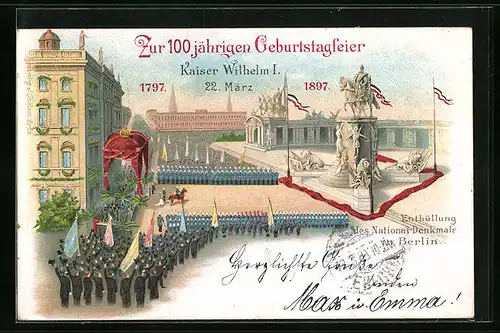 Zur 100 jährigen Geburtstagfeier
Kaiser Wilhelm I.
1797. 22. März 1897.
Enthüllung
des National-Denkmals
in Berlin.
Herzlichste Grüße
senden
Max u. Emma!